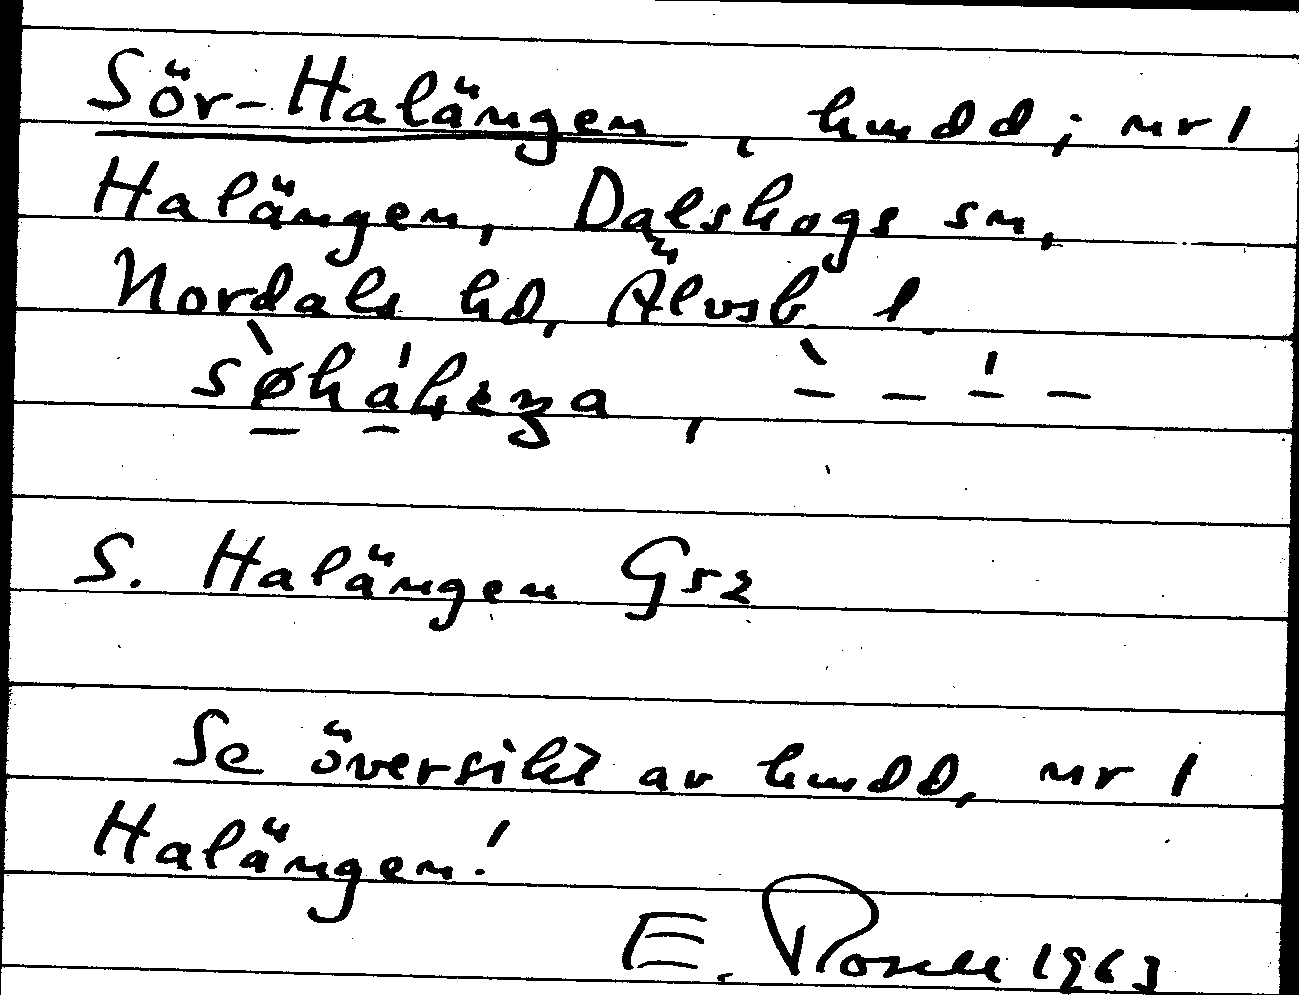 Sör-Halängen, hmdd; nr 1
Halängen, Dalskogs sn,
Nordals hd, Älvsb. l.
S. Halängen Gs2
Se översikt av hmdd, nr 1
Halängen!
E. Rosell 1963